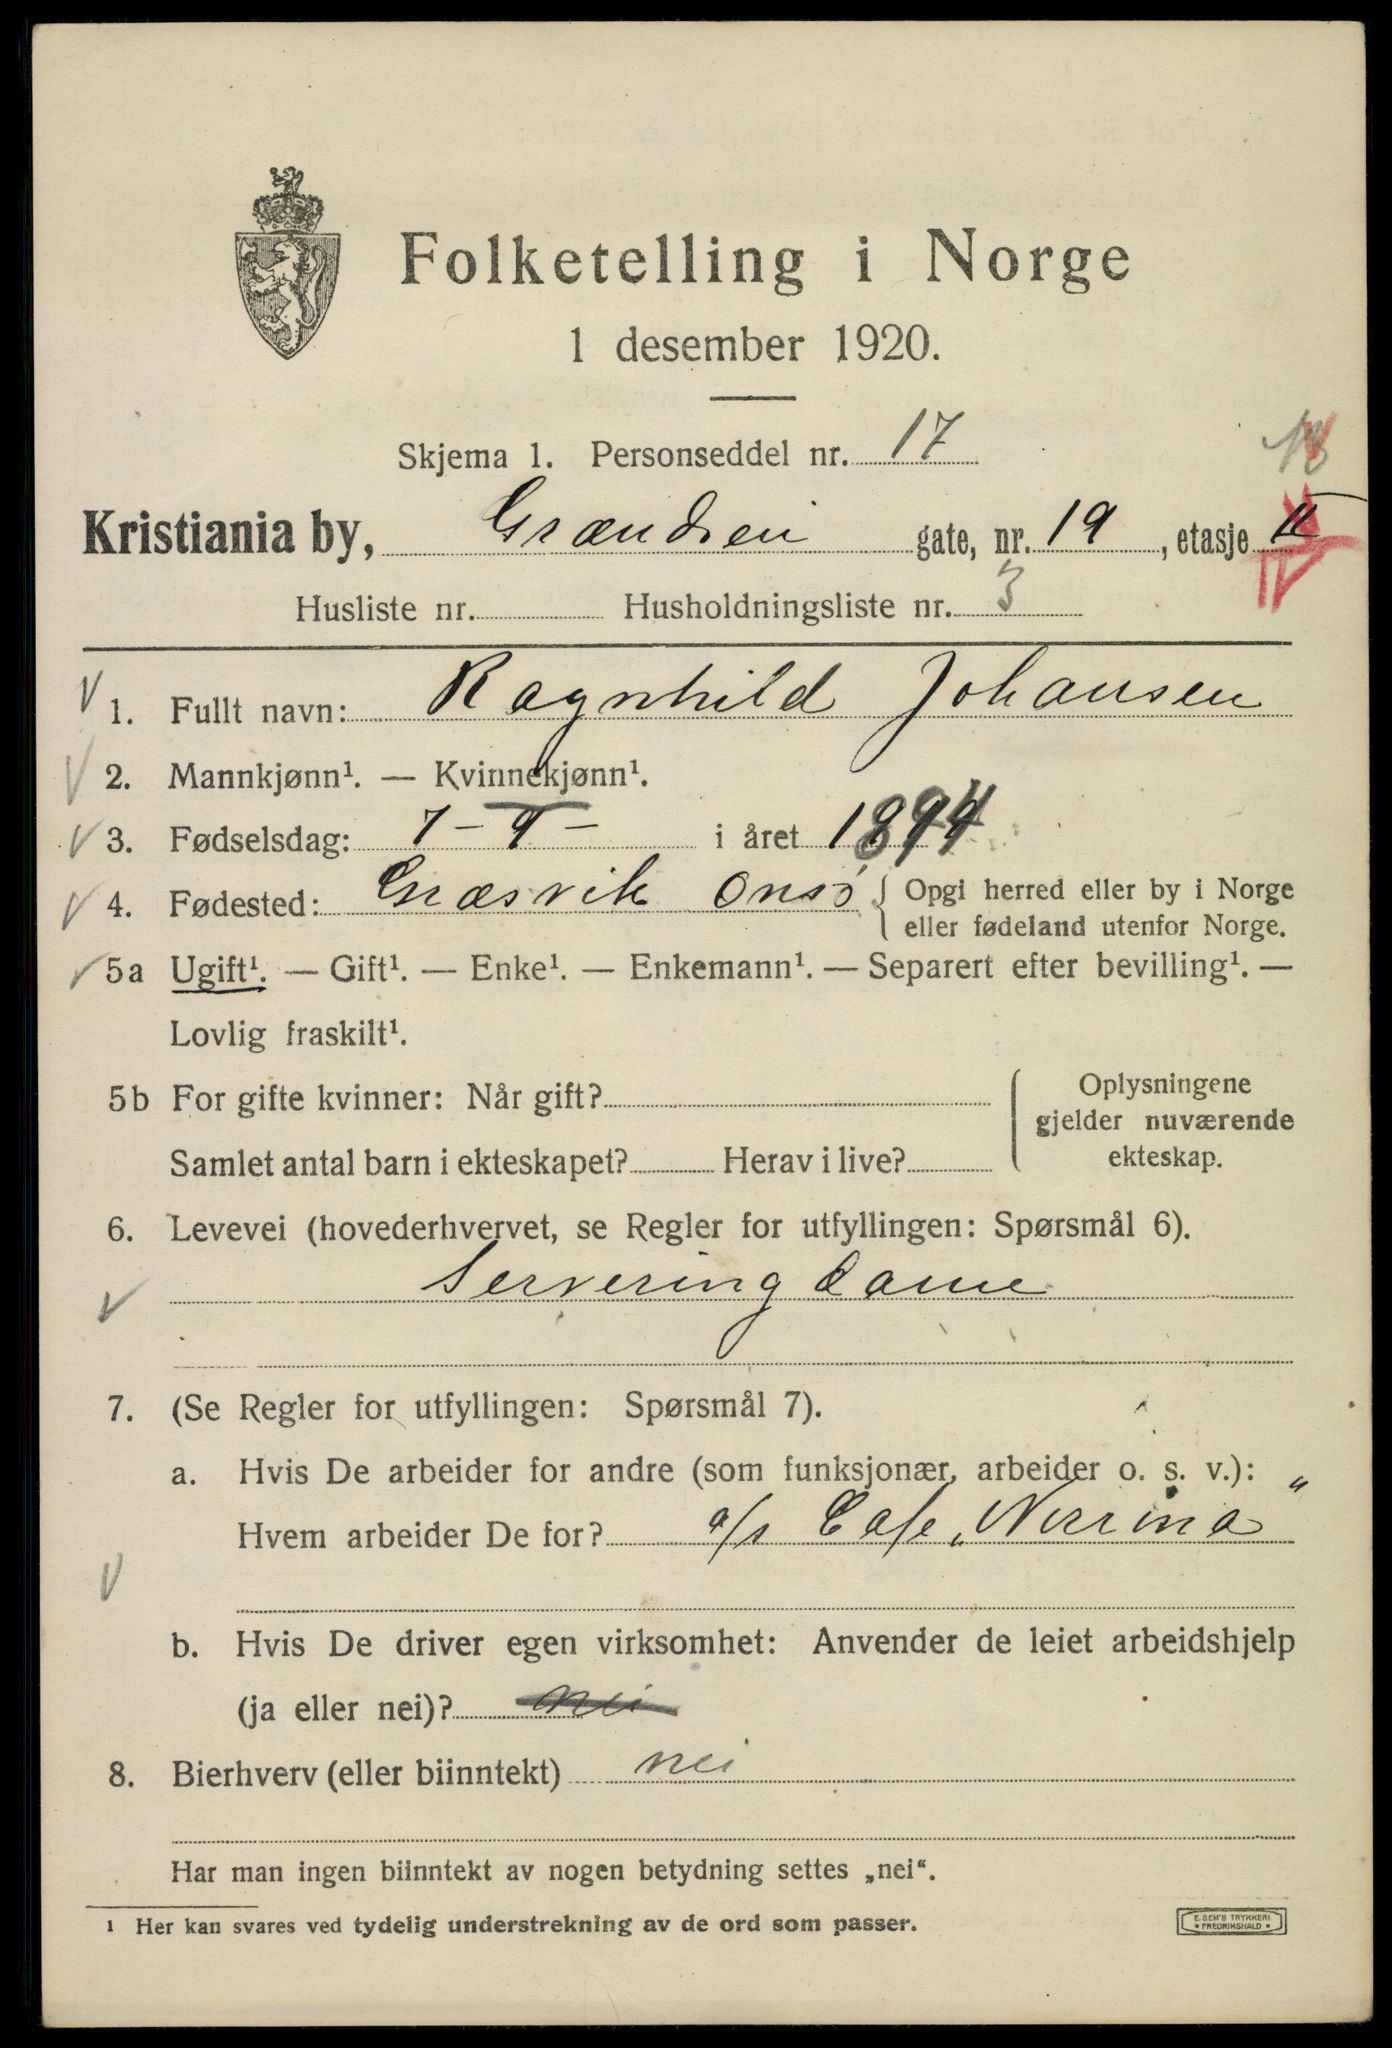 Folketelling i Norge
1 desember 1920.
Skjema 1. Personseddel nr. 17
Kristiania by, Grændsen gate, nr. 19, etasje II
IV
Husliste nr. Husholdningsliste nr. 3
1. Fullt navn: Ragnhild Johansen
2. Mannkjønn¹. — Kvinnekjønn¹.
3. Fødselsdag: 7 - 9 - i året 1894
4. Fødested: Græsvik Onsø { Opgi herred eller by i Norge
eller fødeland utenfor Norge.
5a Ugift¹. — Gift¹. — Enke¹. — Enkemann¹. — Separert efter bevilling¹. —
Lovlig fraskilt¹.
5b For gifte kvinner: Når gift?
Samlet antal barn i ekteskapet? Herav i live?
Oplysningene
gjelder nuværende
ekteskap.
6. Levevei (hovederhvervet, se Regler for utfyllingen: Spørsmål 6).
Servering dame
7. (Se Regler for utfyllingen: Spørsmål 7).
a. Hvis De arbeider for andre (som funksjonær, arbeider o. s. v.):
Hvem arbeider De for? a/s Cafe „Norrøna"
b. Hvis De driver egen virksomhet: Anvender de leiet arbeidshjelp
(ja eller nei)? nei
8. Bierhverv (eller biinntekt) nei
Har man ingen biinntekt av nogen betydning settes „nei“.
¹ Her kan svares ved tydelig understrekning av de ord som passer.
E. SEM'S TRYKKERI
• FREDRIKSHALD •